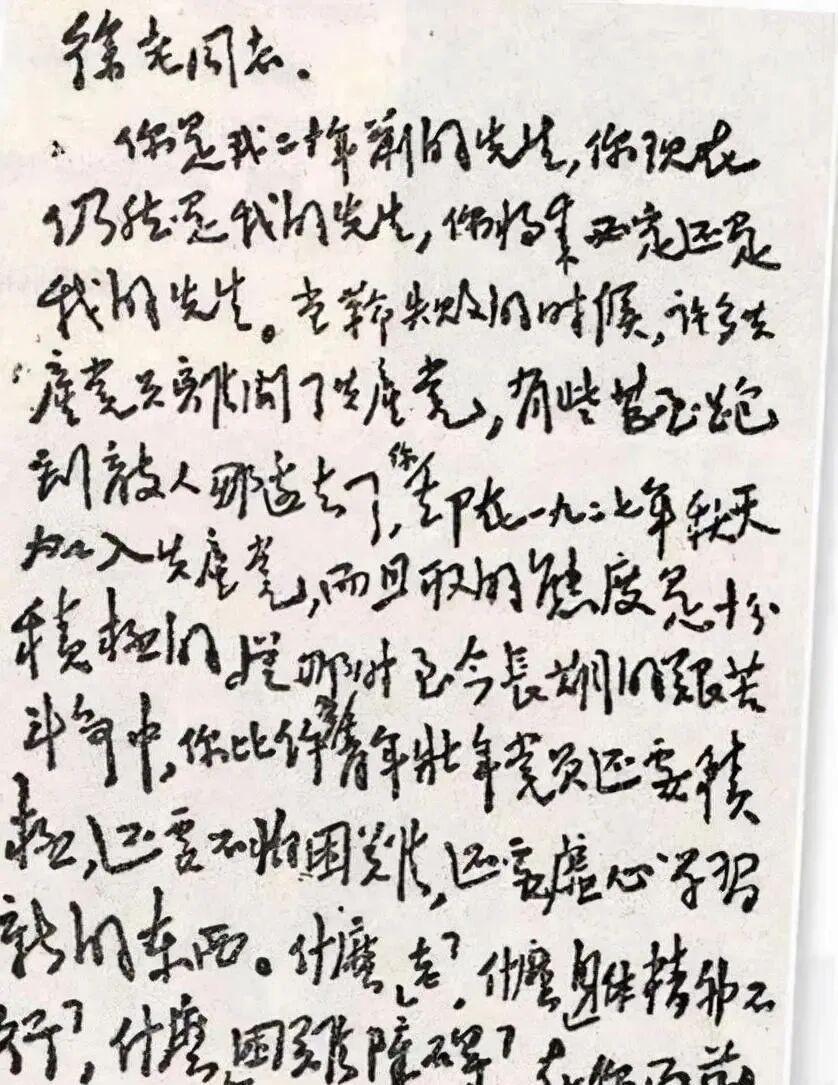 徐老同志。
你是我二十年前的先生，你现在
仍然是我的先生，你将来必定还是
我的先生。当革命失败的时候，许多共
產党员離開了共產党，有些甚至跑
到敵人那边去了，你却在一九二七年秋天
加入共產党，而且取的態度是十分
積極的。從那时至今長期的艱苦
斗争中，你比许多青年壮年党员还要積
極，还要不怕困难，还要虚心学习
新的东西。什麼“老”，什麼“身体精神不
行”，什麼“困難障碍”，在你面前